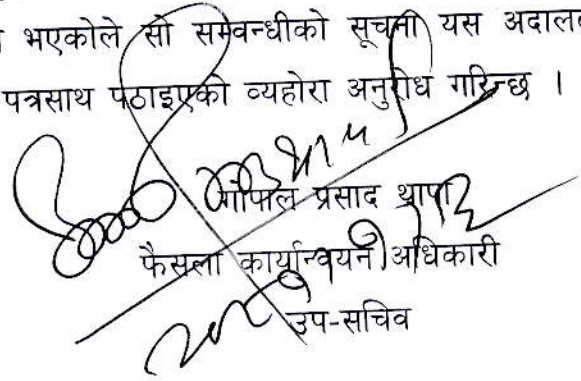 भएकोले सो सम्वन्धीको सूचना यस अदालत
पत्रसाथ पठाइएको व्यहोरा अनुरोध गरिन्छ ।
गोपाल प्रसाद थापा
फैसला कार्यान्वयन अधिकारी
उप-सचिव